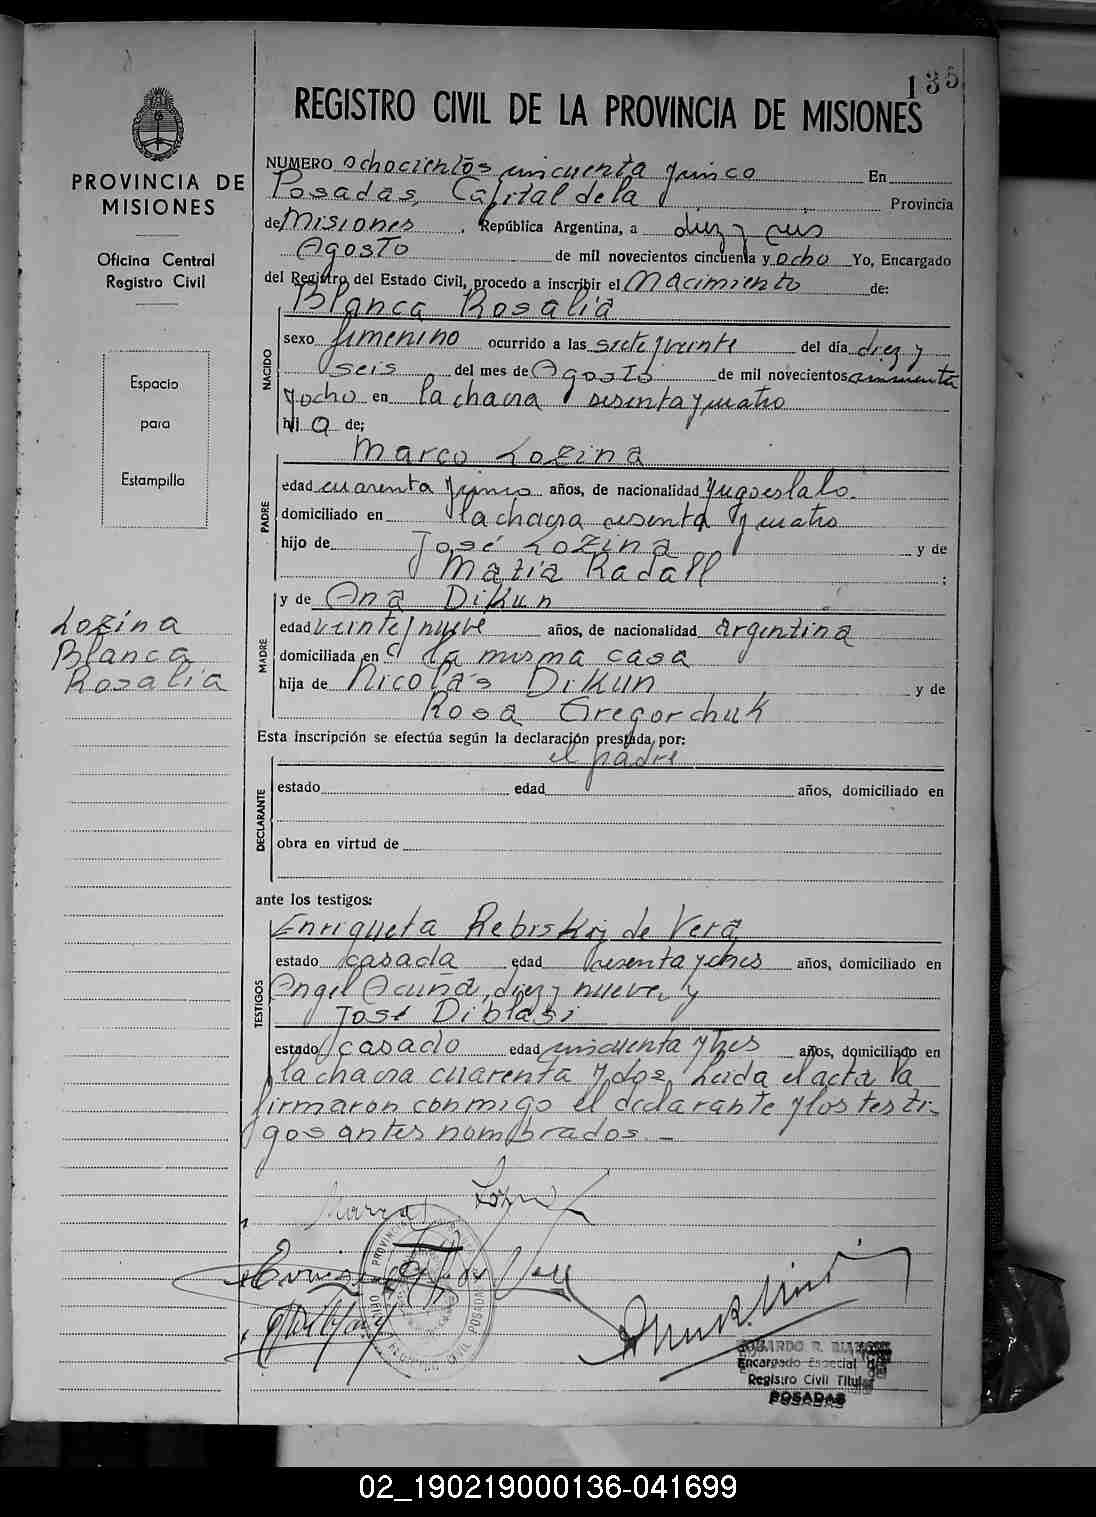 135
REGISTRO CIVIL DE LA PROVINCIA DE MISIONES
PROVINCIA DE
MISIONES
Oficina Central
Registro Civil
Espacio
para
Estampilla
Lozina
Blanca
Rosalia
NUMERO ochocientos cincuenta y cinco En
Posadas, Capital de la Provincia
de Misiones, República Argentina, a diez y seis
Agosto de mil novecientos cincuenta y ocho Yo, Encargado
del Registro del Estado Civil, procedo a inscribir el Nacimiento de:
Blanca Rosalia
NACIDO
sexo femenino ocurrido a las siete y veinte del día diez y
seis del mes de Agosto de mil novecientos cincuenta
y ocho en la chacra sesenta y cuatro
hij a de;
Marco Lozina
PADRE
edad cuarenta y cinco años, de nacionalidad Yugoeslabo.
domiciliado en la chacra sesenta y cuatro
hijo de José Lozina y de
Maria Radall ;
y de Ana Dikun
MADRE
edad veinte y nueve años, de nacionalidad argentina
domiciliada en la misma casa
hija de Nicolás Dikun y de
Rosa Gregorchuk
Esta inscripción se efectúa según la declaración prestada por:
el padre
DECLARANTE
estado edad años, domiciliado en
obra en virtud de
ante los testigos:
Enriqueta Rebiskij de Vera
TESTIGOS
estado casada edad años, domiciliado en
Angel Acuña, diez y nueve, y
José Diblasi
estado casado edad cincuenta y tres años, domiciliado en
la chacra cuarenta y dos, Leida el acta la
firmaron conmigo el declarante y los testi-
gos antes nombrados.-
Marco Lozina
PROVINCIA
REGISTRO CIVIL POSADAS
Encargado Especial
Registro Civil Titular
POSADAS
02_190219000136-041699